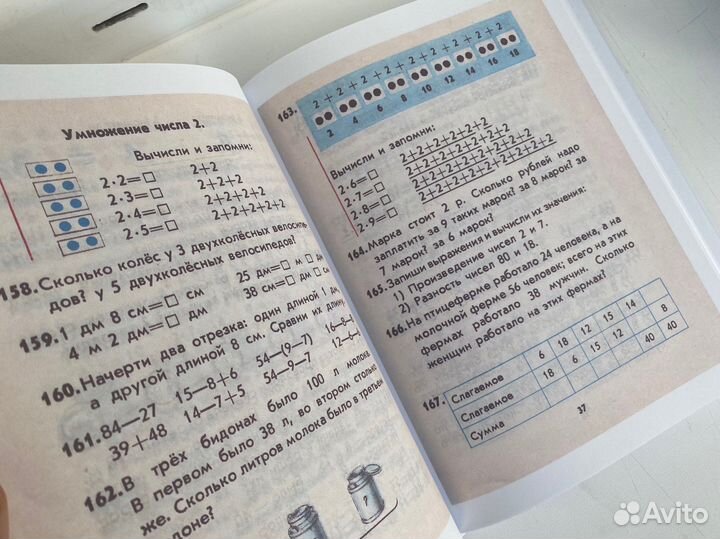 Умножение числа 2.
Вычисли и запомни:
2·2=□ 2+2
2·3=□ 2+2+2
2·4=□ 2+2+2+2
2·5=□ 2+2+2+2+2
158. Сколько колёс у 3 двухколёсных велосипе-
дов? у 5 двухколёсных велосипедов?
159. 1 дм 8 см=□ см 25 дм=□ м □ дм
4 м 2 дм=□ дм 38 см=□ дм □ см
160. Начерти два отрезка: один длиной 1 дм,
а другой длиной 8 см. Сравни их длину.
161. 84—27 15—8+6 54—(9—7)
39+48 14—7+5 54—9—7
162. В трёх бидонах было 100 л молока.
В первом было 38 л, во втором столько
же. Сколько литров молока было в третьем
?
163.
2+2+2+2+2+2+2+2+2
2 4 6 8 10 12 14 16 18
Вычисли и запомни:
2·6=□ 2+2+2+2+2+2
2·7=□ 2+2+2+2+2+2+2
2·8=□ 2+2+2+2+2+2+2+2
2·9=□ 2+2+2+2+2+2+2+2+2
164. Марка стоит 2 р. Сколько рублей надо
заплатить за 9 таких марок? за 8 марок? за
7 марок? за 6 марок?
165. Запиши выражения и вычисли их значения:
1) Произведение чисел 2 и 7.
2) Разность чисел 80 и 18.
166. На птицеферме работало 24 человека, а на
молочной ферме 56 человек; всего на этих
фермах работало 38 мужчин. Сколько
женщин работало на этих фермах?
167.
Слагаемое 6 18 12 15 14
Слагаемое 18 6 15 12 8
Сумма 40 40
37
Avito